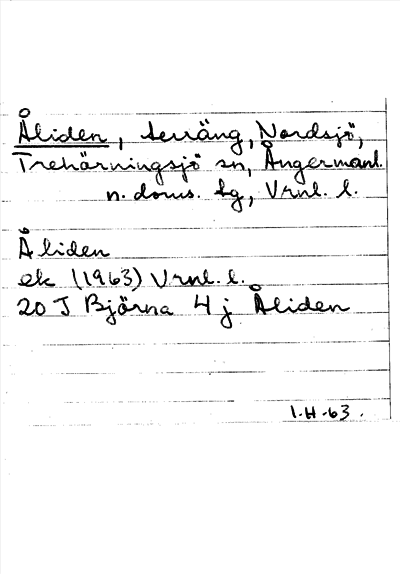 Åliden, terräng, Nordsjö,
Trehörningsjö sn, Ångermanl.
n. doms. bg, Vrnl. l.
Åliden
ek (1963) Vrnl. l.
20 J Björna 4 j Åliden
I.H.-63.